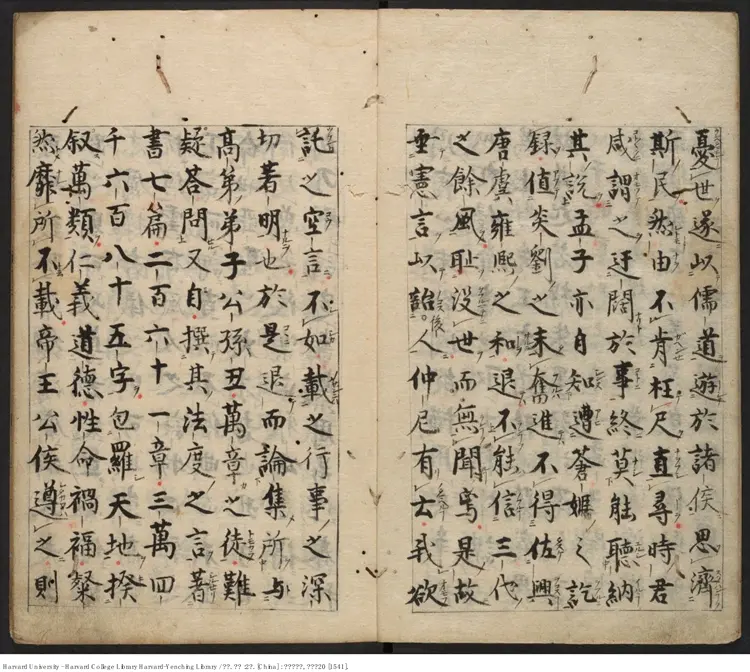 憂世遂以儒道遊於諸侯思濟
斯民然由不肯枉尺直尋時君
咸謂之迂闊於事終莫能聽納
其説孟子亦自知遭蒼姬之訖
録值炎劉之未奮進不得佐興
唐虞雍熙之和退不能信三代
之餘風恥没世而無聞焉是故
垂憲言以詒後人仲尼有云我欲
託之空言不如載之行事之深
切著明也於是退而論集所与
高第弟子公孫丑萬章之徒難
疑答問又自撰其法度之言著
書七篇二百六十一章三萬四
千六百八十五字包羅天地揆
叙萬類仁義道德性命禍福粲
然靡所不載帝王公侯遵之則
Harvard University - Harvard College Library Harvard-Yenching Library / ??. ?? :27. [China] : ?????, ???20 [1541].